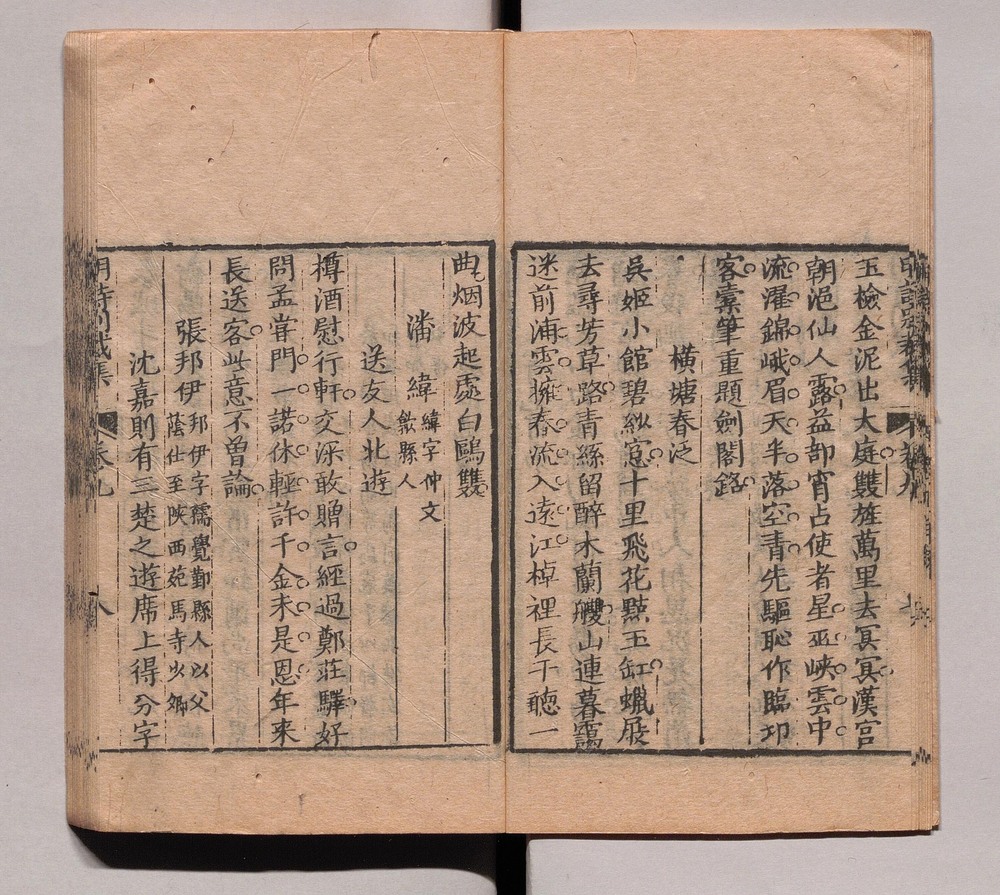 玉檢金泥出大庭雙旌萬里去冥冥漢宮
朝浥仙人露益部宵占使者星巫峽雲中
流濯錦峨眉天半落空青先驅恥作臨卭
客橐筆重題劍閣銘
橫塘春泛
吳姬小館碧紗窓十里飛花點玉缸蠟屐
去尋芳草路青絲留醉木蘭艭山連暮靄
迷前浦雲擁春流入遠江棹裡長干聽一
曲烟波起處白鷗雙
潘緯
緯字仲文
歙縣人
送友人北遊
樽酒慰行軒交深敢贈言經過鄭莊驛好
問孟甞門一諾休輕許千金未是恩年來
長送客此意不曾論
張邦伊
邦伊字孺覺鄞縣人以父
蔭仕至陝西苑馬寺少卿
沈嘉則有三楚之遊席上得分字
卷九
八